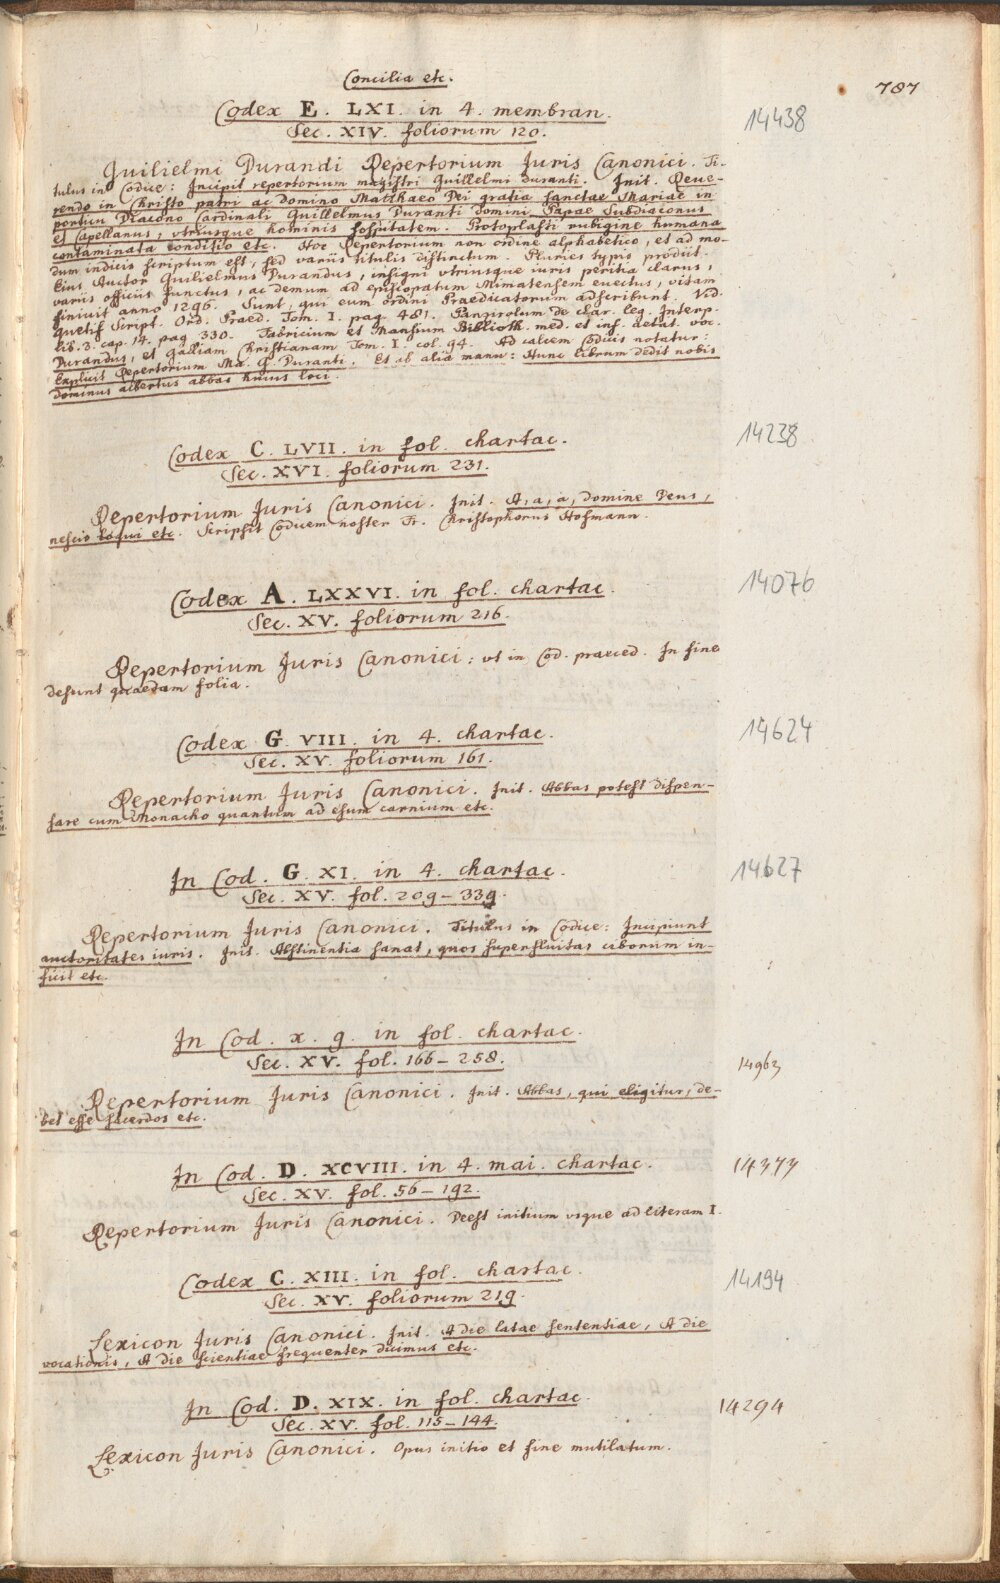 Concilia etc.
787
Codex E. LXI. in 4. membran.
14438
Sec. XIV. foliorum 120.
Guilielmi Durandi Repertorium Iuris Canonici. Ti-
tulus in Codice: Incipit repertorium magistri Guillelmi Duranti. Init. Reue-
rendo in Christo patri ac domino Matthaeo Dei gratia sanctae Mariae in
portiu Diacono Cardinali Guillelmus Duranti Domini Papae Subdiaconus
et Capellanus, vtriusque hominis sospitatem. Protoplasti rubigine humana
contaminata conditio etc. Hoc Repertorium non ordine alphabetico, et ad mo-
dum indicis scriptum est, sed variis titulis distinctum. Pluries typis prodiit.
Eius Auctor Guilielmus Durandus, insigni vtriusque iuris peritia clarus,
variis officiis functus, ac demum ad episcopatum Mimatensem euectus, vitam
finiuit anno 1296. Sunt, qui eum ordini Praedicatorum adscribunt. Vid.
Quetif Script. Ord. Praed. Tom. I. pag. 481. Panzirolum de clar. leg. Interp.
lib. 3. cap. 14. pag. 330. Fabricium et Mansium Biblioth. med. et inf. aetat. voc.
Durandus, et Galliam Christianam Tom. I. col. 94. Ad calcem Codicis notatur:
Explicit Repertorium Ma. G. Duranti. Et ab alia manu: Hunc librum dedit nobis
dominus albertus abbas huius loci.
Codex C. LVII. in fol. chartac.
14238
Sec. XVI. foliorum 231.
Repertorium Iuris Canonici. Init. A, a, a, domine Deus,
nescio loqui etc. Scripsit Codicem noster Fr. Christophorus Hofmann.
Codex A. LXXVI. in fol. chartac.
14076
Sec. XV. foliorum 216.
Repertorium Iuris Canonici: vt in Cod. praeced. In fine
desunt quaedam folia.
Codex G. VIII. in 4. chartac.
14624
Sec. XV. foliorum 161.
Repertorium Iuris Canonici. Init. Abbas potest dispen-
sare cum monacho quantum ad esum carnium etc.
In Cod. G. XI. in 4. chartac.
14627
Sec. XV. fol. 209–339.
Repertorium Iuris Canonici. Titulus in Codice: Incipiunt
auctoritates iuris. Init. Abstinentia sanat, quos superfluitas ciborum in-
ficit etc.
In Cod. x. 9. in fol. chartac.
Sec. XV. fol. 166–258.
14963
Repertorium Iuris Canonici. Init. Abbas, qui eligitur, de-
bet esse sacerdos etc.
In Cod. D. XCVIII. in 4. mai. chartac.
14373
Sec. XV. fol. 56–192.
Repertorium Iuris Canonici. Deest initium vsque ad literam I.
Codex C. XIII. in fol. chartac.
14194
Sec. XV. foliorum 219.
Lexicon Iuris Canonici. Init. A die latae sententiae, A die
vocationis, A die scientiae frequenter dicimus etc.
In Cod. D. XIX. in fol. chartac.
14294
Sec. XV. fol. 115–144.
Lexicon Iuris Canonici. Opus initio et fine mutilatum.